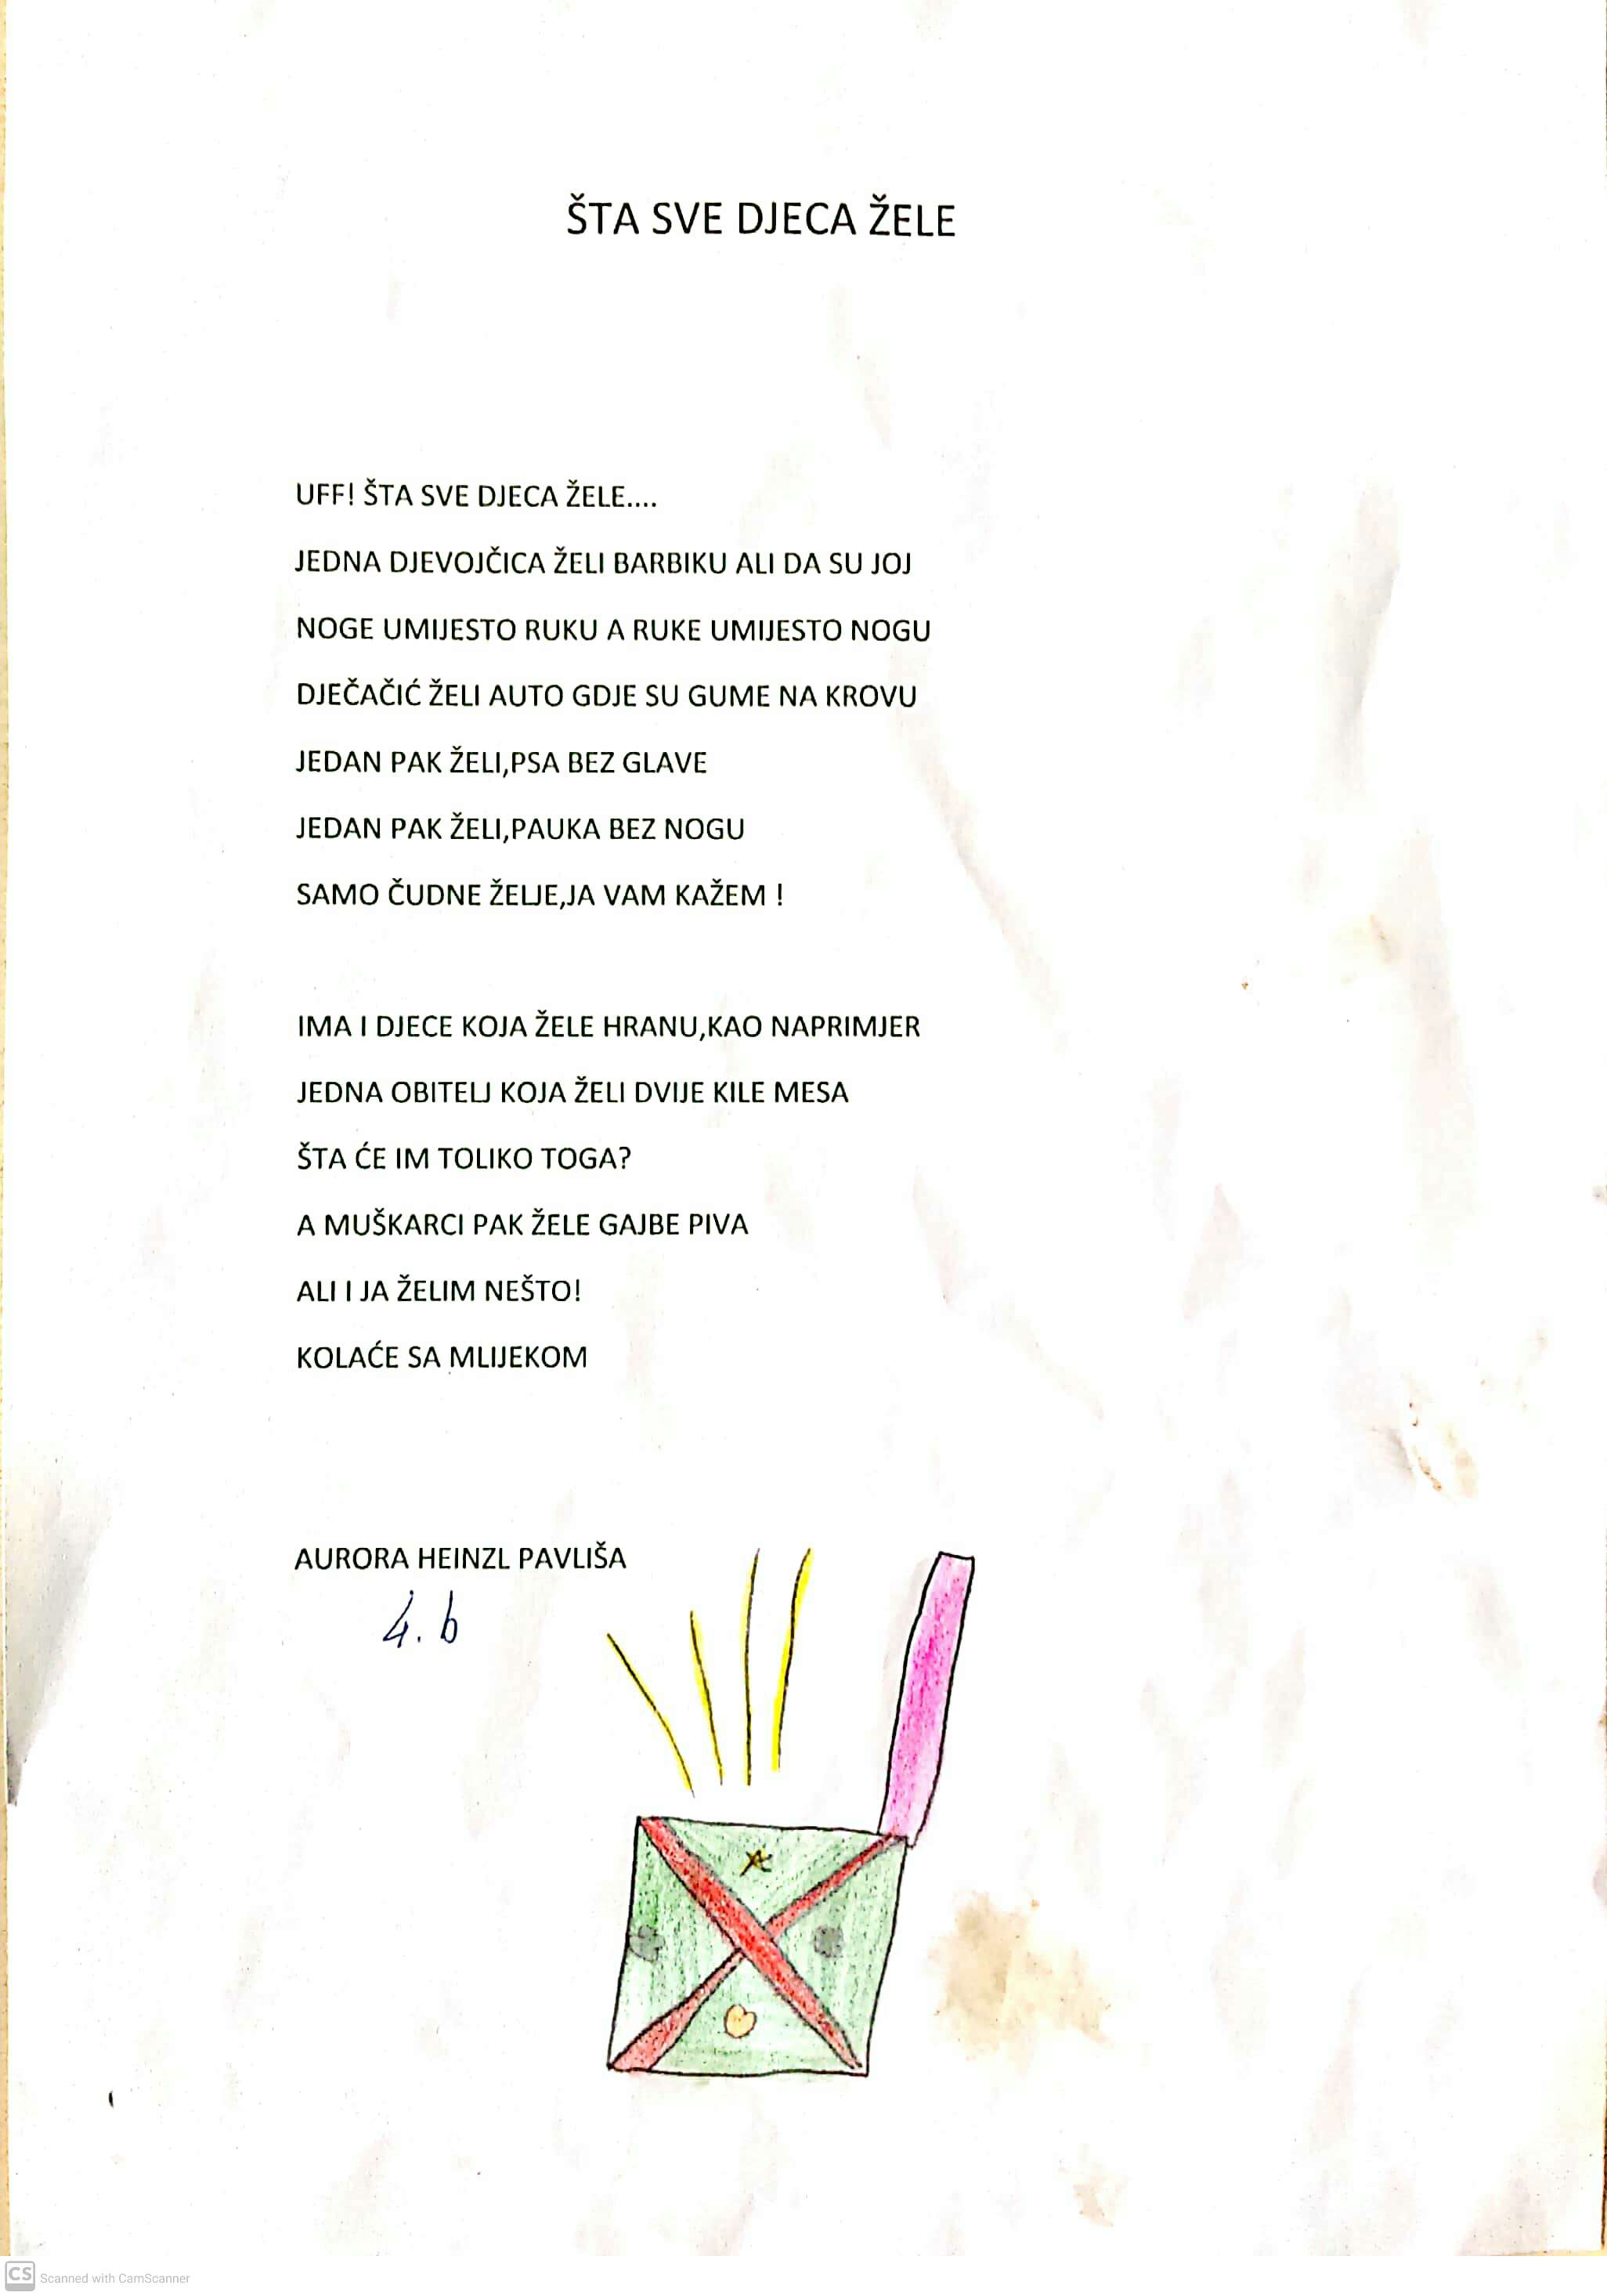 ŠTA SVE DJECA ŽELE
UFF! ŠTA SVE DJECA ŽELE....
JEDNA DJEVOJČICA ŽELI BARBIKU ALI DA SU JOJ
NOGE UMIJESTO RUKU A RUKE UMIJESTO NOGU
DJEČAČIĆ ŽELI AUTO GDJE SU GUME NA KROVU
JEDAN PAK ŽELI,PSA BEZ GLAVE
JEDAN PAK ŽELI,PAUKA BEZ NOGU
SAMO ČUDNE ŽELJE,JA VAM KAŽEM !
IMA I DJECE KOJA ŽELE HRANU,KAO NAPRIMJER
JEDNA OBITELJ KOJA ŽELI DVIJE KILE MESA
ŠTA ĆE IM TOLIKO TOGA?
A MUŠKARCI PAK ŽELE GAJBE PIVA
ALI I JA ŽELIM NEŠTO!
KOLAĆE SA MLIJEKOM
AURORA HEINZL PAVLIŠA
4. b
CS Scanned with CamScanner